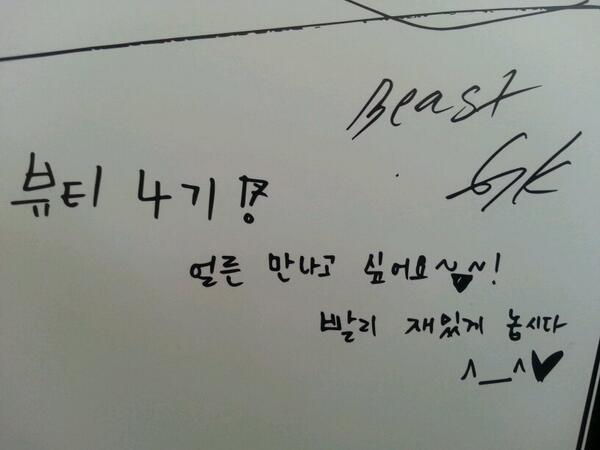 Beast
GK
뷰티 4기!
얼른 만나고 싶어요~♥~!
빨리 재밌게 놉시다
^__^♥